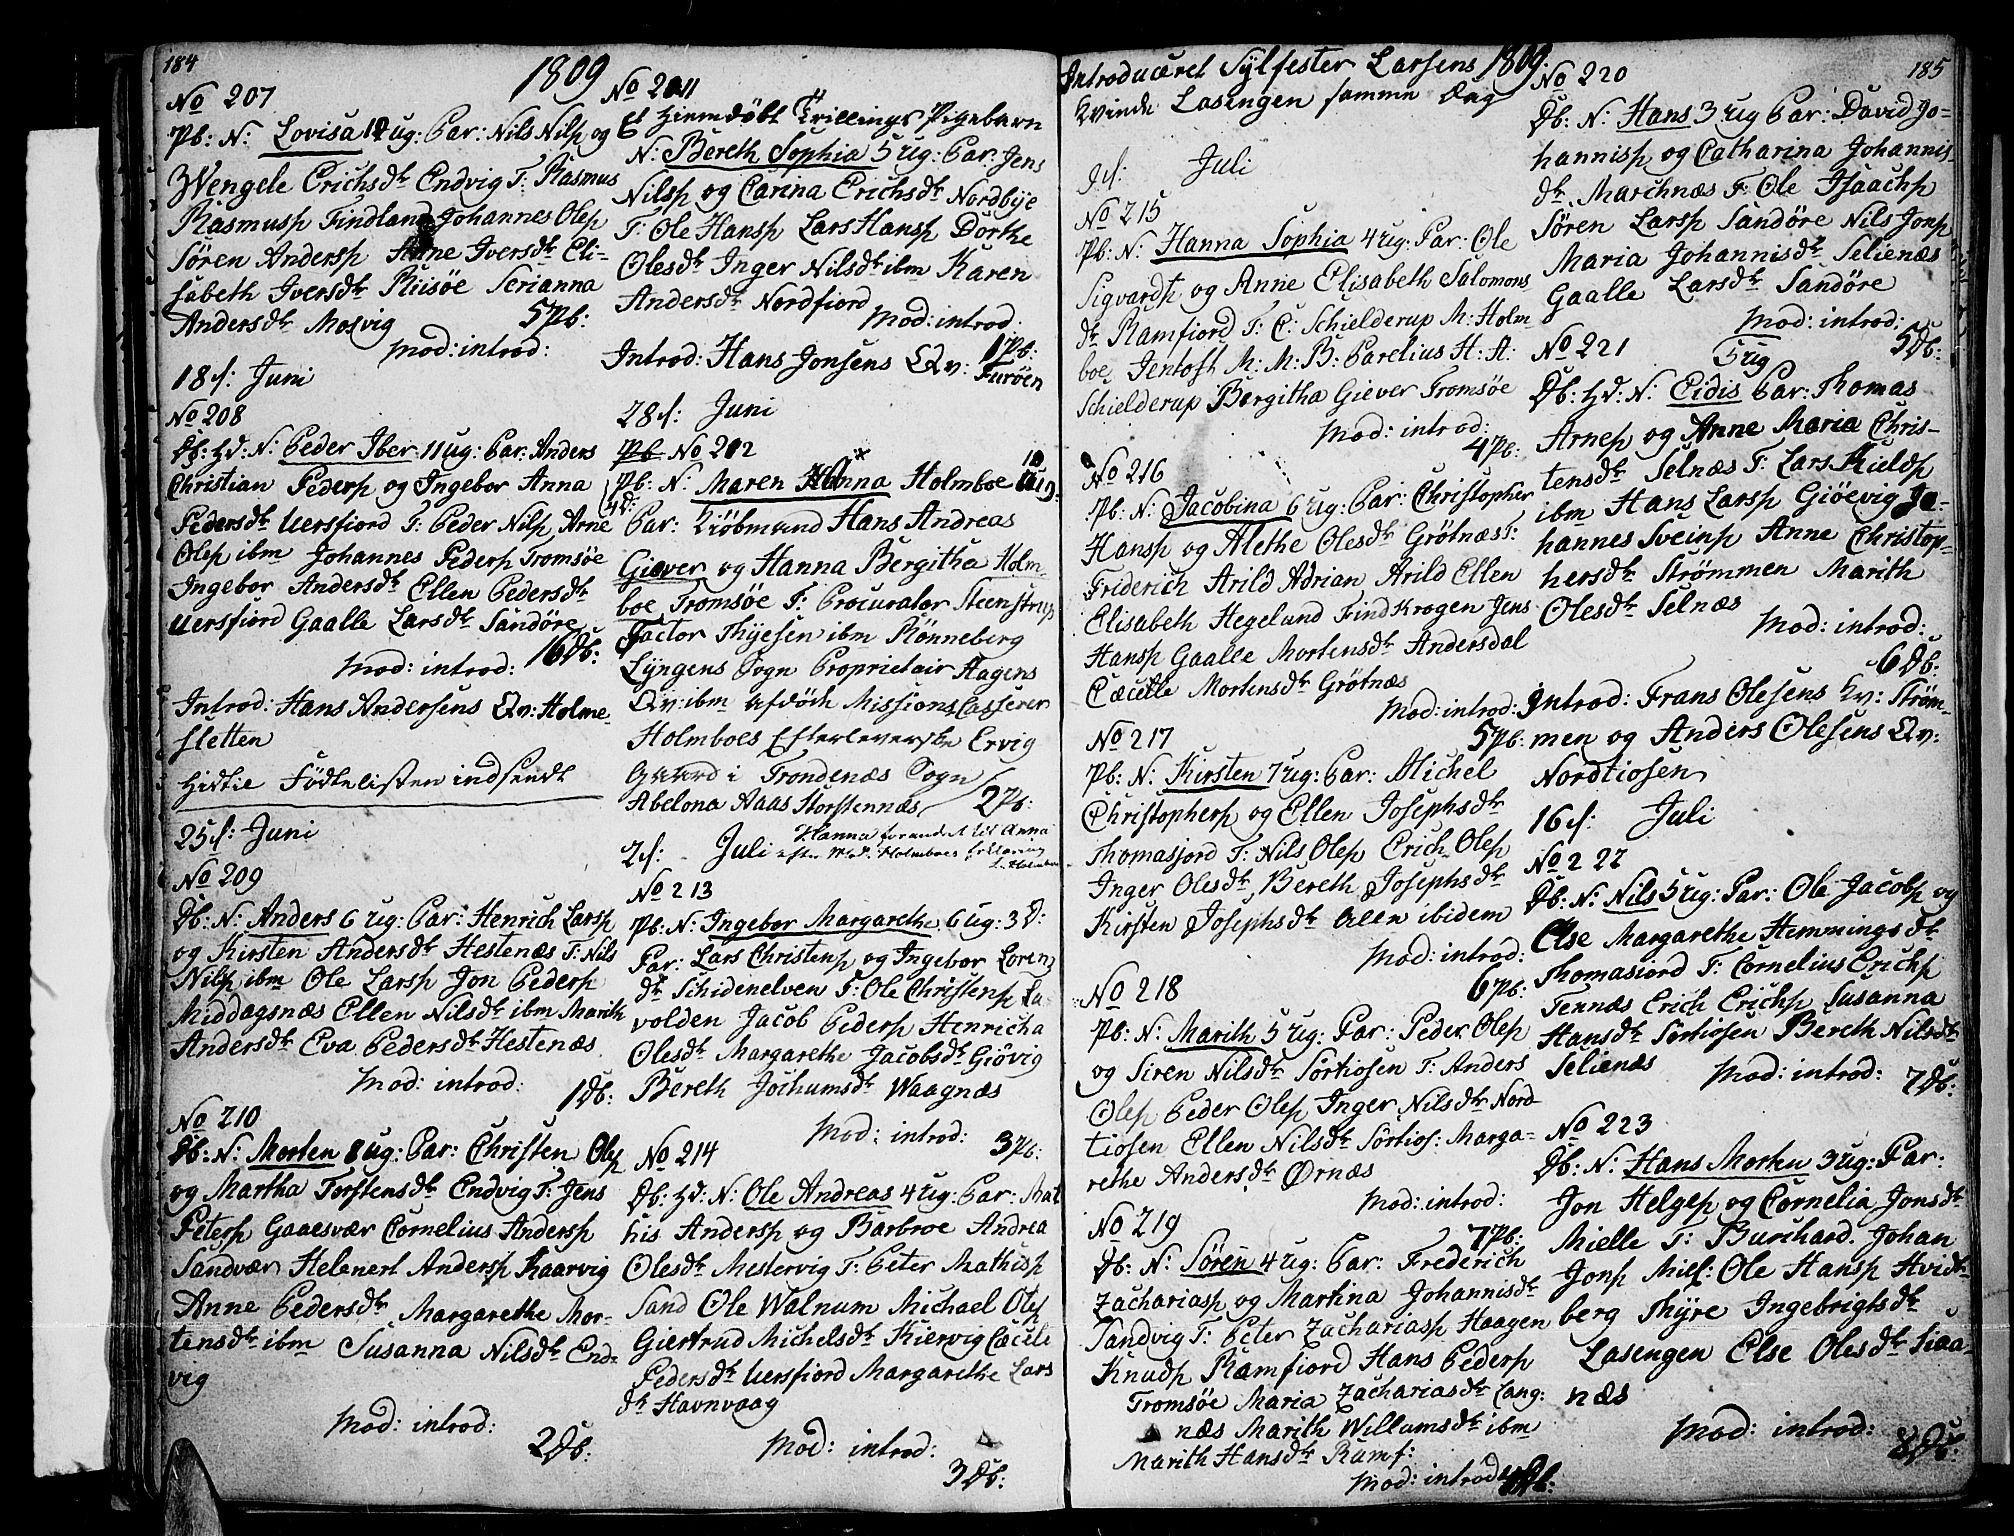 184
1809
No 207
Pb: N: Lovisa 12 ug: Par: Nils Nils og
Wengele Erichsdr Endvig F: Rasmus
Rasmus Findland Johannes Ols
Søren Anders Anne Iversdr Eli-
sabeth Iversdr Riisøe Serianna
Andersdr Mosvig 5 Pb:
Mod: introd:
18 d: Juni
No 208
Db: Hd: N: Peder Iber 11 ug: Par: Anders
Christian Peders og Ingebor Anna
Pedersdr Uersfiord F: Peder Nils Arne
Ols ibm Johannes Peders Tromsøe
Ingebor Andersdr Ellen Pedersdr
Uersfiord Gaalle Larsdr Sandøre
Mod: introd: 16 Db:
Introd: Hans Andersens Qv: Holme-
sletten
Hidtil Fødtelisten indsendt
25 d: Juni
No 209
Db: N: Anders 6 ug: Par: Henrich Lars
og Kirsten Andersdr Hestenæs F: Nils
Nils ibm Ole Lars Jon Peders
Middagsnæs Ellen Nilsdr ibm Marith
Andersdr Eva Pedersdr Hestenæs
Mod: introd: 1 Db:
No 210
Db: N: Morten 8 ug: Par: Christen Ols
og Martha Torstensdr Endvig F: Jens
Peters Gaaesvær Cornelius Anders
Sandvær Helenert Anders Kaarvig
Anne Pedersdr Margarethe Mor-
tensdr ibm Susanna Nilsdr End-
vig
Mod: introd:
2 Db:
No 211
Et Hiemdøbt Trillings Pigebarn
N: Bereth Sophia 5 ug: Par: Jens
Nils og Carina Erichsdr Nordbye
F: Ole Hans Lars Hans Dorthe
Olesdr Inger Nilsdr ibm Karen
Andersdr Nordfiord
Mod: introd:
1 Pb:
Introd: Hans Jonsens Qv: Furøen
28 d: Juni
Pb No 212
Pb: N: Maren Hanna Holmboe 10 ug:
Hd:
Par: Kiøbmand Hans Andreas
Giæver og Hanna Bergitha Holm-
boe Tromsøe F: Procurator Steenstrup
Factor Thyesen ibm Rønneberg
Lyngens Sogn Proprietair Hagens
Qv: ibm afdøde Missions Casserer
Holmboes Efterleverske Ervig
Gaard i Trondenæs Sogn
Abelona Aaas Storstennæs 2 Pb:
Hanna forandret til Anna
efter Mad. Holmboes forklaring
2 d: Juli
No 213
Pb: N: Ingebor Margarethe 6 ug: 3 D:
Par: Lars Christens og Ingebor Lorenz
dr Schidenelven F: Ole Christens La-
volden Jacob Peders Henricha
Olesdr Margarethe Jacobsdr Giøvig
Bereth Jochumsdr Waagnæs
Mod: introd: 3 Pb:
No 214
Db: Hd: N: Ole Andreas 4 ug: Par: Mat
his Anders og Barbroe Andrea
Olesdr Mestervig F: Peter Mathis
Sand Ole Walnum Michael Ols
Giertrud Michelsdr Kiervig Cæcele
Pedersdr Uersfiord Margarethe Lars
dr Havnvaag
Mod: introd:
3 Db:
Introduceret Sylfester Larsens 1809.
Kvinde Lasengen samme Dag
9 d: Juli
No 215
Pb: N: Hanna Sophia 4 ug: Par: Ole
Sigvards og Anne Elisabeth Salomons
dr Ramfiord F: C: Schielderup M: Holm-
boe Jentoft M: M: B: Parelius H: A:
Schielderup Bergitha Giever Tromsøe
Mod: introd:
4 Pb:
No 216
Pb: N: Jacobina 6 ug: Par: Christopher
Hans og Alethe Olesdr Grøtnæs F:
Friderich Arild Adrian Arild Ellen
Elisabeth Hegelund Find Krogen Jens
Hans Gaalle Mortensdr Andersdal
Cæcelle Mortensdr Grøtnæs
Mod: introd:
5 Pb:
No 217
Pb: N: Kirsten 7 ug: Par: Michel
Christophers og Ellen Josephsdr
Thomasjord F: Nils Ols Erich Ols
Inger Olesdr Bereth Josephsdr
Kirsten Josephsdr Allen ibidem
Mod: introd:
6 Pb:
No 218
Pb: N: Marith 5 ug: Par: Peder Ols
og Siren Nilsdr Sørtiosen F: Anders
Ols Peder Ols Inger Nilsdr Nord
tiosen Ellen Nilsdr Sørtios: Marga-
rethe Andersdr Ørnæs
Mod: introd:
7 Pb:
No 219
Db: N: Søren 4 ug: Par: Frederich
Zacharias og Martina Johannisdr
Sandvig F: Peter Zacharias Haagen
Knuds Ramfiord Hans Peders
Tromsøe Maria Zachariasdr Lang:
næs Marith Willumsdr ibm
Marith Hansdr Ramf:
Mod: introd: 4 Db:
185
No 220
Db: N: Hans 3 ug Par: David Jo-
hannis og Catharina Johannis-
dr Marchnæs F: Ole Isaachs
Søren Lars Sandøre Nils Jons
Maria Johannisdr Selienæs
Gaalle Larsdr Sandøre
Mod: introd:
5 Db:
No 221
5 ug
Db: Hd: N: Eidis Par: Thomas
Arnes og Anne Maria Chris-
tensdr Selnæs F: Lars Kields
ibm Hans Lars Giøevig Jo-
hannes Sveins Anne Christop-
hersdr Strømmen Marith
Olesdr Selnæs
Mod: introd:
6 Db:
Introd: Frans Olesens Kv: Strøm-
men og Anders Olesens Qv:
Nordtiosen
16 d: Juli
No 222
Db: N: Nils 5 ug: Par: Ole Jacobs og
Else Margarethe Hemmingsdr
Thomasjord F: Cornelius Erichs
Tennæs Erich Erichs Susanna
Hansdr Sørtiosen Bereth Nilsdr
Selienæs
Mod: introd: 7 Db:
No 223
Db: N: Hans Morten 3 ug: Par:
Jon Helges og Cornelia Jonsdr
Mielle F: Burchard Johan
Jons Miel: Ole Hans Hvidt-
berg Thyre Ingebrigtsdr
Lasengen Else Olesdr Skaa-
næs
Mod: introd:
8 Db: